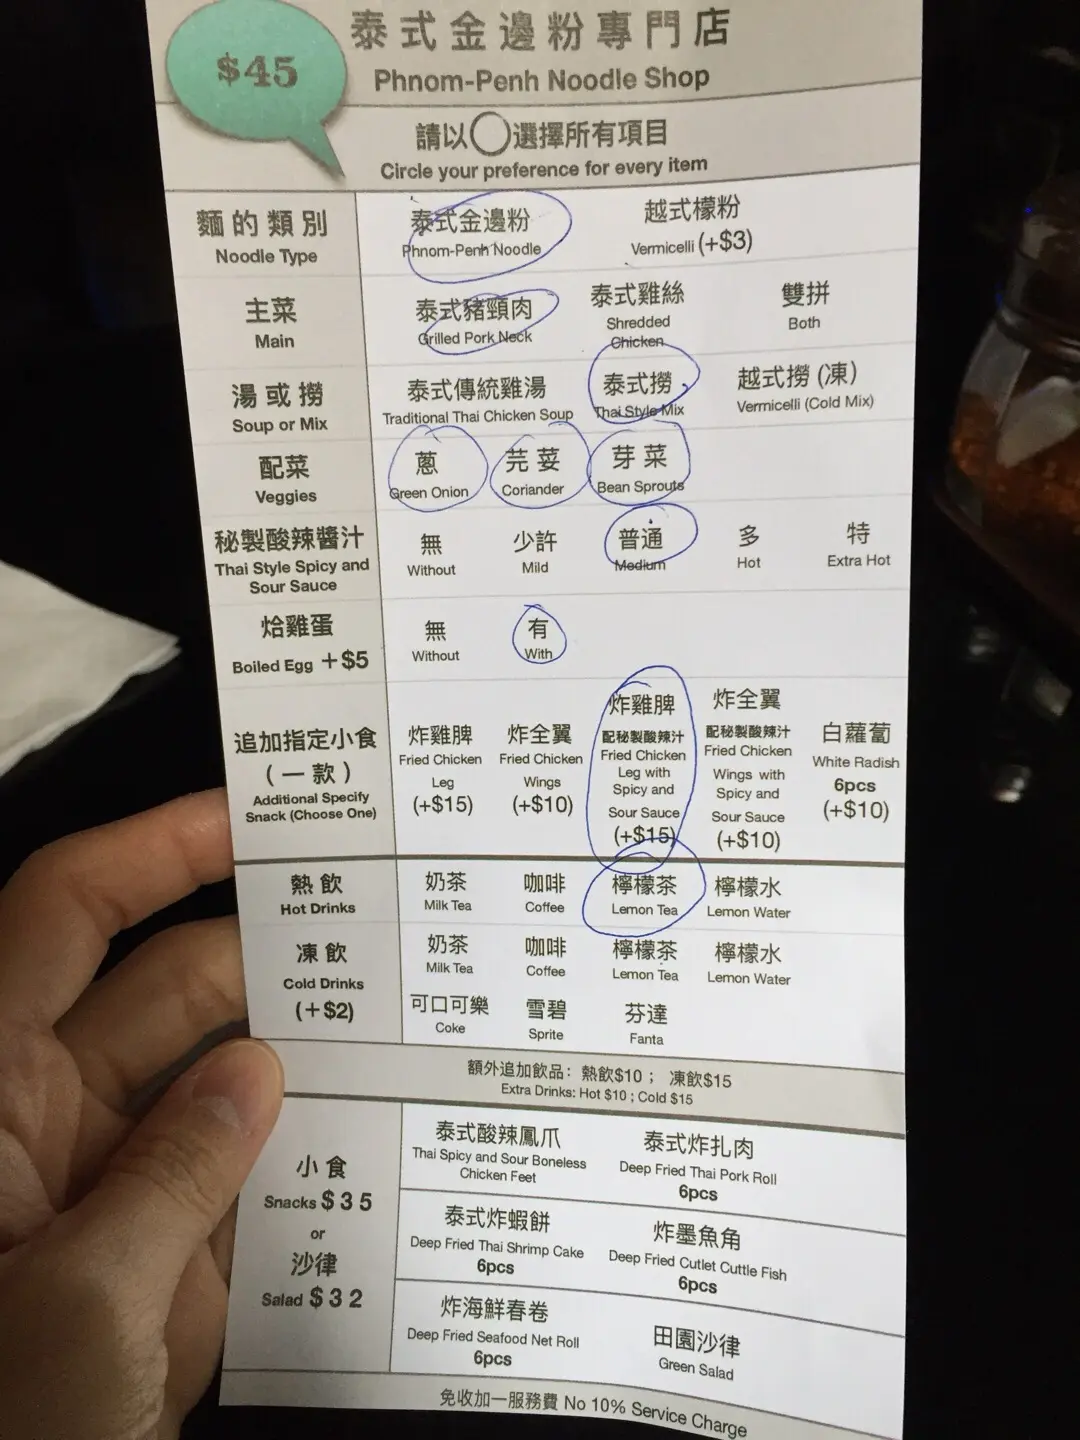 $45
泰式金邊粉專門店
Phnom-Penh Noodle Shop
請以◯選擇所有項目
Circle your preference for every item
麵的類別
Noodle Type
泰式金邊粉
Phnom-Penh Noodle
越式檬粉
Vermicelli (+$3)
主菜
Main
泰式豬頸肉
Grilled Pork Neck
泰式雞絲
Shredded
Chicken
雙拼
Both
湯或撈
Soup or Mix
泰式傳統雞湯
Traditional Thai Chicken Soup
泰式撈
Thai Style Mix
越式撈 (凍)
Vermicelli (Cold Mix)
配菜
Veggies
蔥
Green Onion
芫荽
Coriander
芽菜
Bean Sprouts
秘製酸辣醬汁
Thai Style Spicy and
Sour Sauce
無
Without
少許
Mild
普通
Medium
多
Hot
特
Extra Hot
烚雞蛋
Boiled Egg +$5
無
Without
有
With
追加指定小食
(一款)
Additional Specify
Snack (Choose One)
炸雞脾
Fried Chicken
Leg
(+$15)
炸全翼
Fried Chicken
Wings
(+$10)
炸雞脾
配秘製酸辣汁
Fried Chicken
Leg with
Spicy and
Sour Sauce
(+$15)
炸全翼
配秘製酸辣汁
Fried Chicken
Wings with
Spicy and
Sour Sauce
(+$10)
白蘿蔔
White Radish
6pcs
(+$10)
熱飲
Hot Drinks
奶茶
Milk Tea
咖啡
Coffee
檸檬茶
Lemon Tea
檸檬水
Lemon Water
凍飲
Cold Drinks
(+$2)
奶茶
Milk Tea
咖啡
Coffee
檸檬茶
Lemon Tea
檸檬水
Lemon Water
可口可樂
Coke
雪碧
Sprite
芬達
Fanta
額外追加飲品: 熱飲$10 ; 凍飲$15
Extra Drinks: Hot $10 ; Cold $15
小食
Snacks $35
or
沙律
Salad $32
泰式酸辣鳳爪
Thai Spicy and Sour Boneless
Chicken Feet
泰式炸扎肉
Deep Fried Thai Pork Roll
6pcs
泰式炸蝦餅
Deep Fried Thai Shrimp Cake
6pcs
炸墨魚角
Deep Fried Cutlet Cuttle Fish
6pcs
炸海鮮春卷
Deep Fried Seafood Net Roll
6pcs
田園沙律
Green Salad
免收加一服務費 No 10% Service Charge